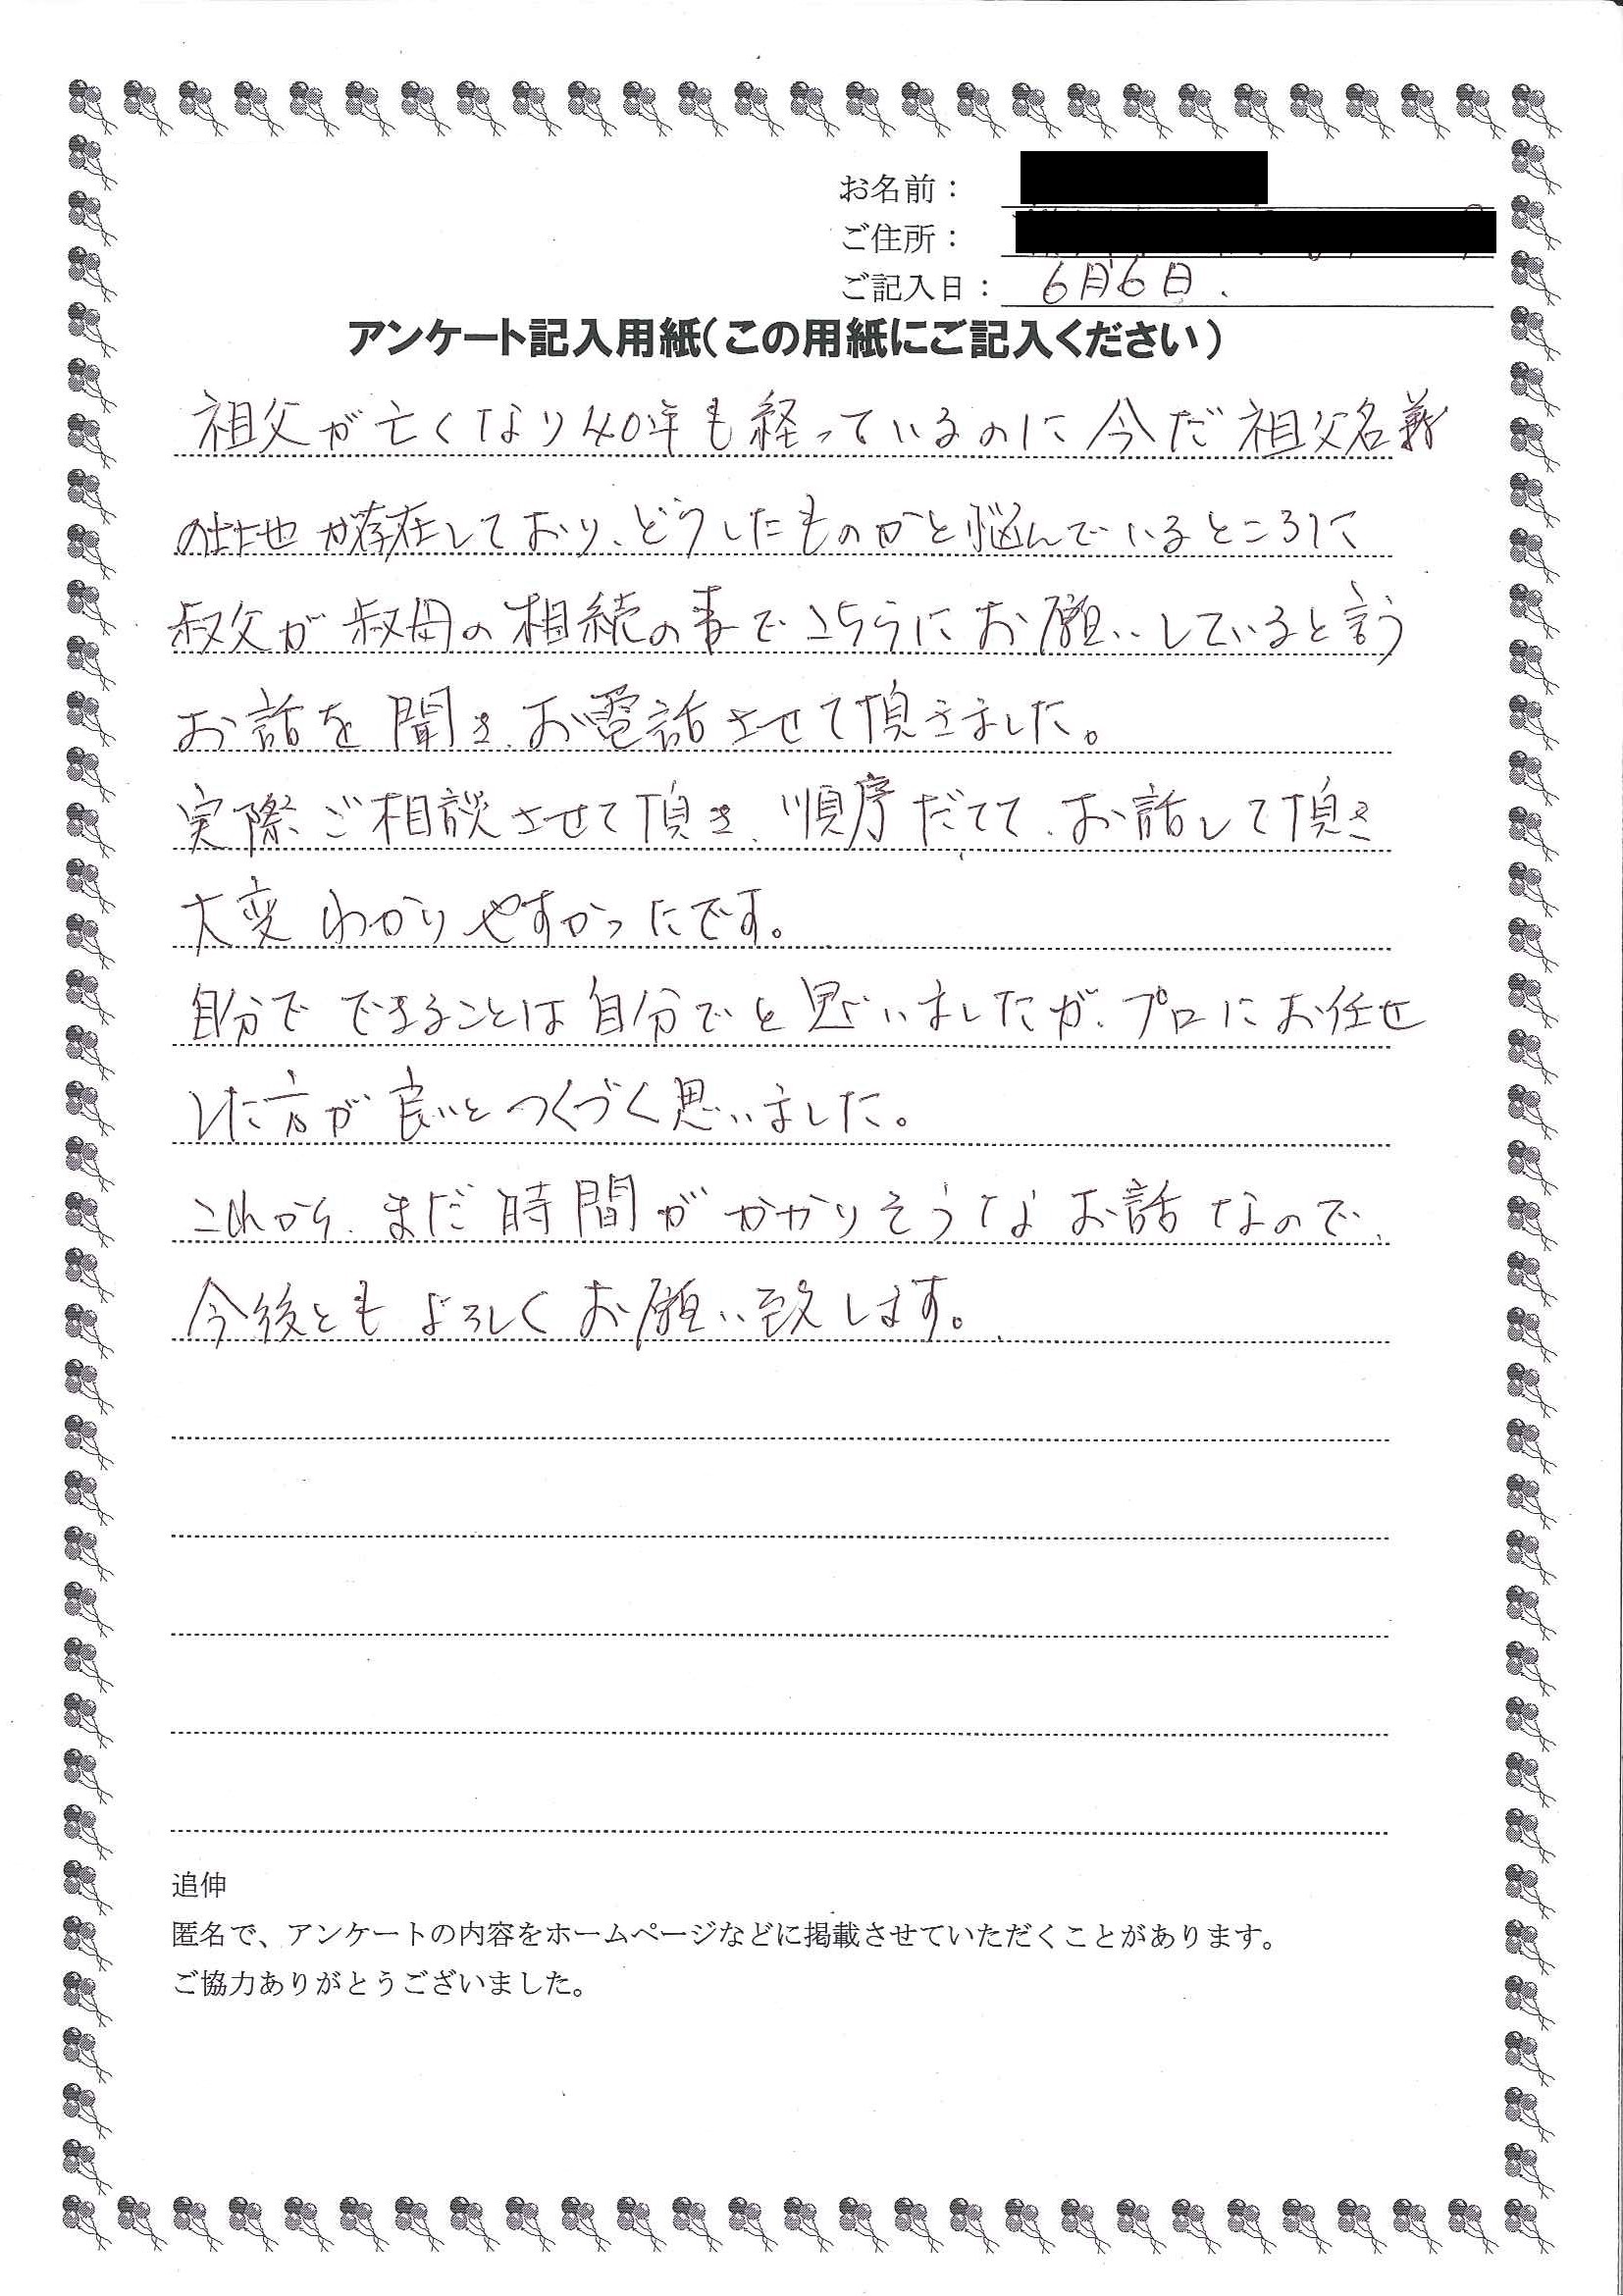 お名前：
ご住所：
ご記入日： 6月6日.
アンケート記入用紙（この用紙にご記入ください）
祖父が亡くなり40年も経っているのに今だ祖父名義
の土地が存在しており、どうしたものかと悩んでいるところに
叔父が叔母の相続の事でこちらにお願いしていると言う
お話を聞き、お電話させて頂きました。
実際、ご相談させて頂き、順序だてて、お話して頂き
大変わかりやすかったです。
自分でできることは自分でと思いましたが、プロにお任せ
した方が良いとつくづく思いました。
これから、まだ時間がかかりそうなお話なので、
今後ともよろしくお願い致します。
追伸
匿名で、アンケートの内容をホームページなどに掲載させていただくことがあります。
ご協力ありがとうございました。